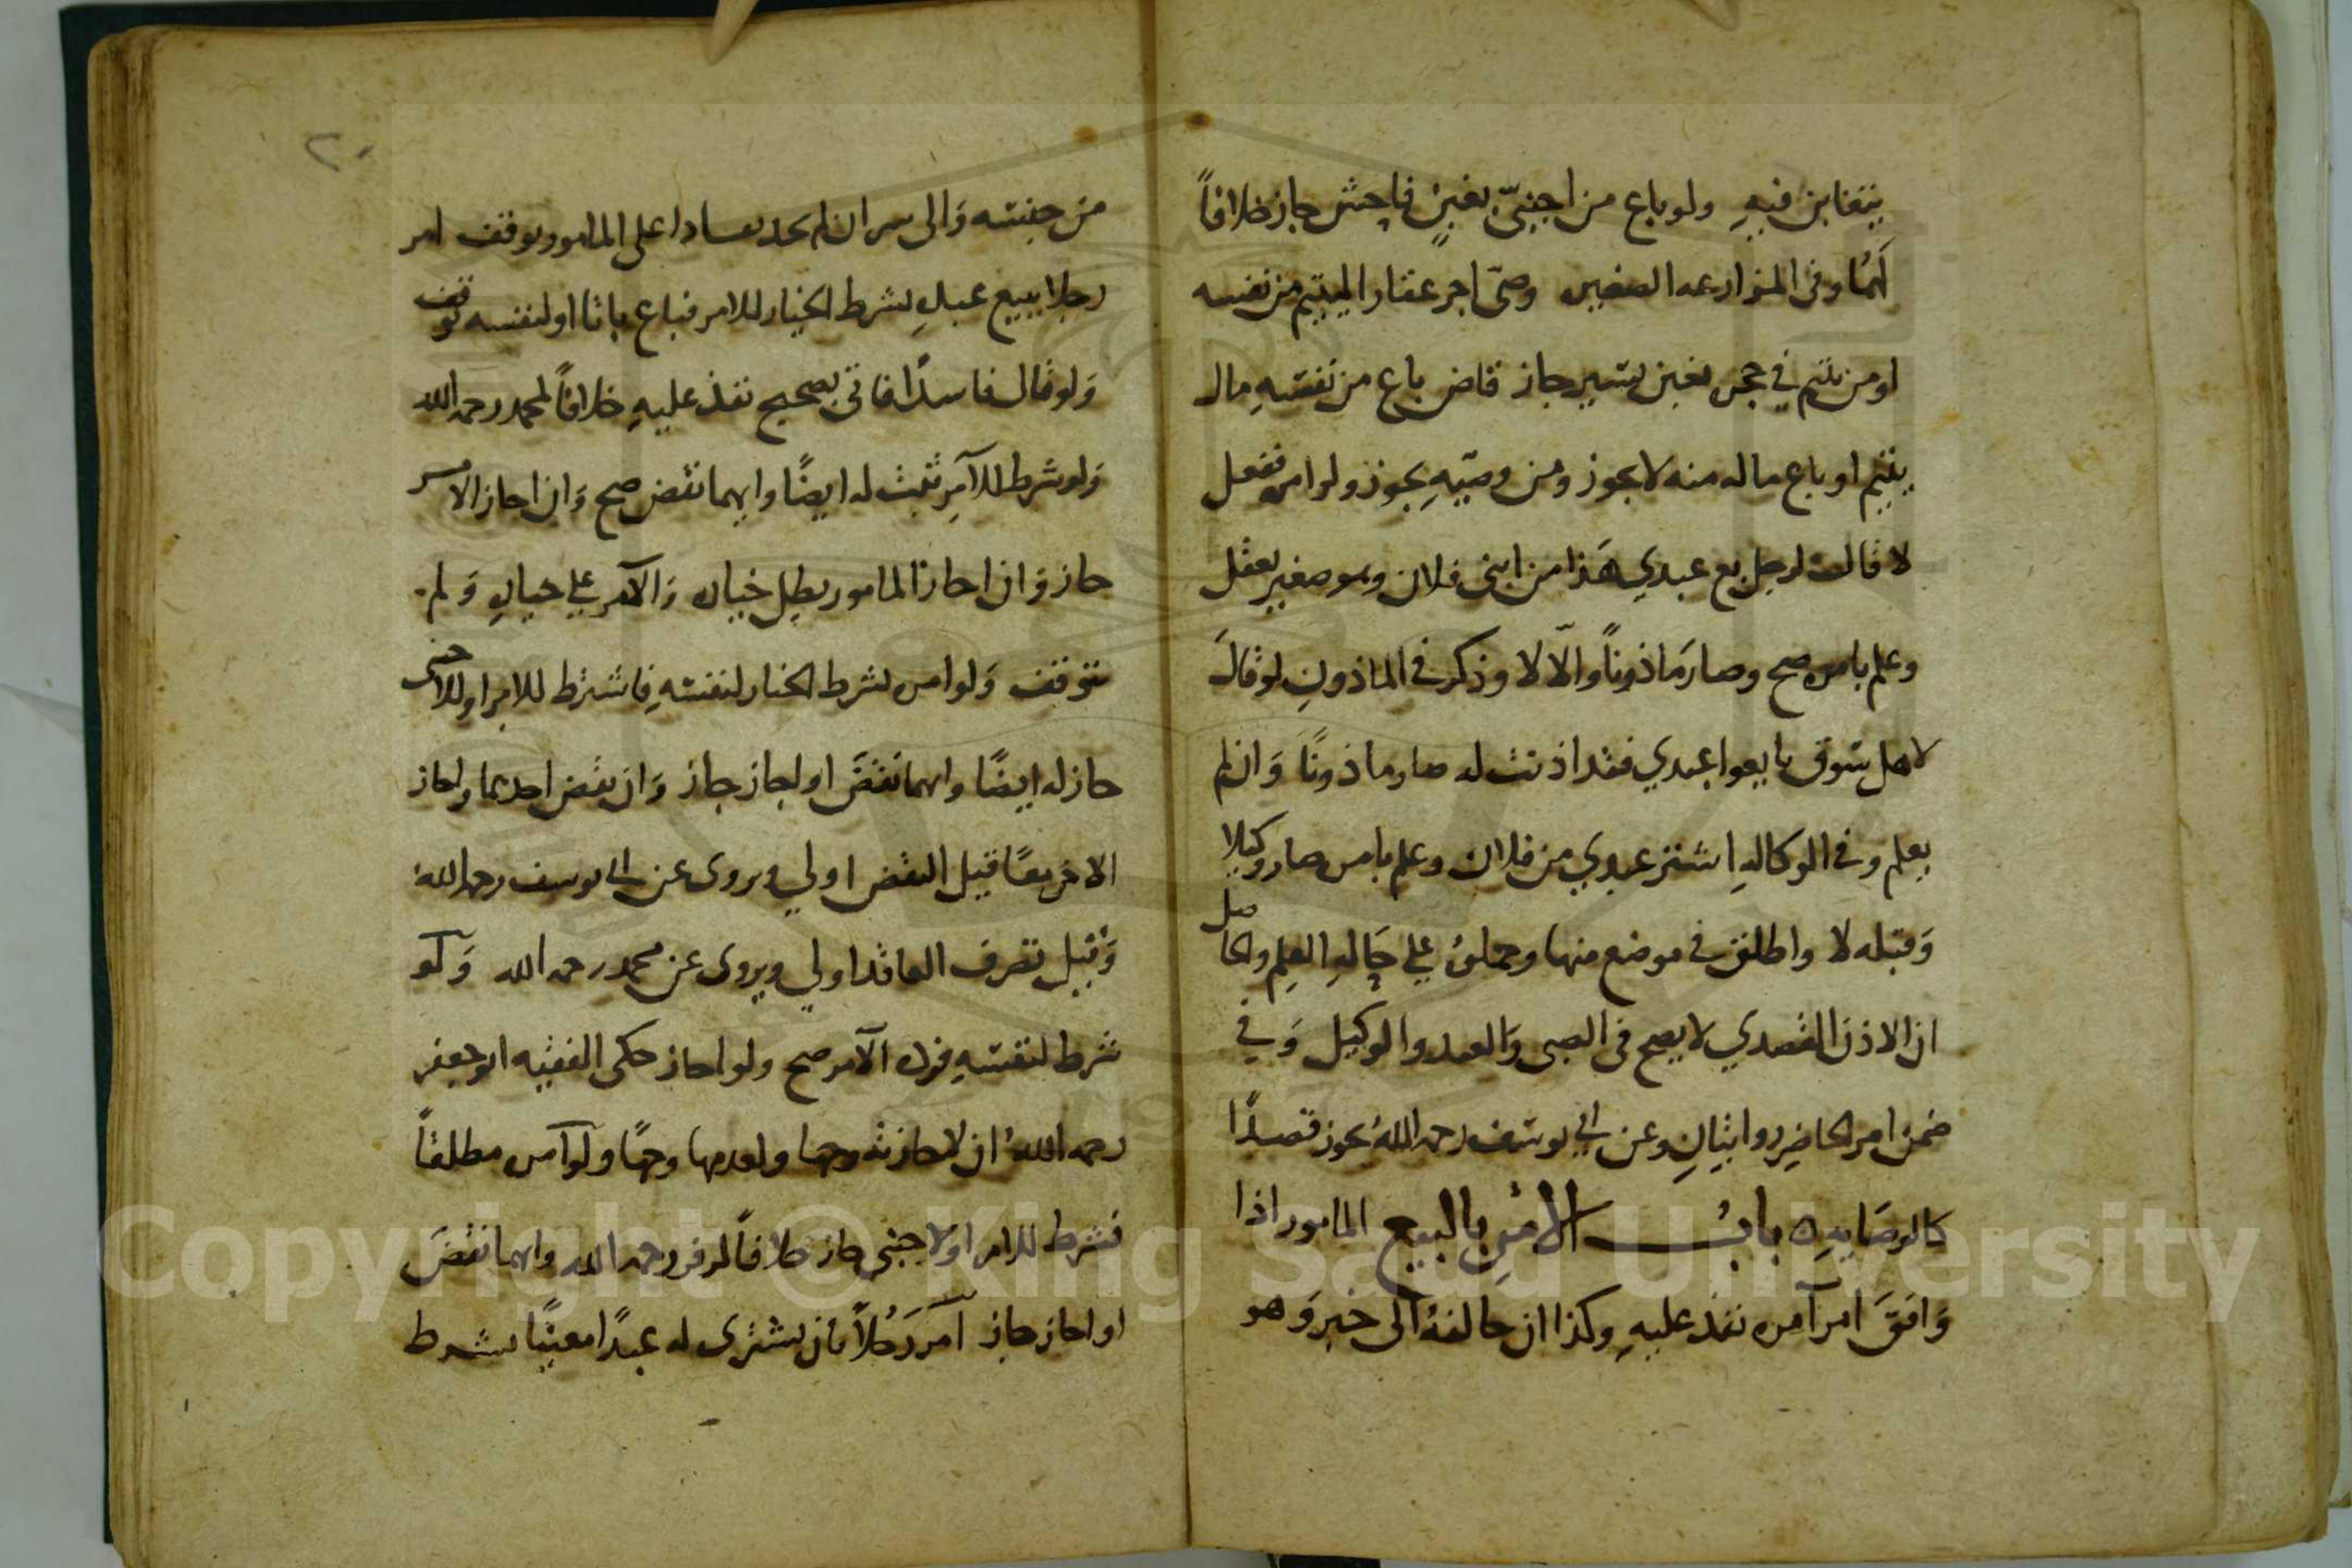 يتغابن فيه ولو باع من اجنبيّ بغبن فاحش جاز خلافاً
لهما وفي المزارعه الصغير وصيّ اجر عقار اليتيم من نفسه
او من يتيم في حجره بغبن يسير جاز قاض باع من نفسه مال
يتيم او باع ماله منه لا يجوز ومن وصيّه يجوز ولو امره ففعل
لا قالت لرجل بع عبدي هذا من ابني فلان وهو صغير يعقل
وعلم بامره صح وصار ماذوناً والّا لا وذكر في الماذون لو قال
لاهل سوق بايعوا عبدي فقد اذنت له صار ماذونًا وان لم
يعلم وفي الوكاله اشتر عبدي من فلان وعلم بامره صار وكيلا
وقبله لا واطلق في موضع منها وحمله علي حاله العلم والحاصل
ان الاذن القصدي لا يصح في الصبي والعبد والوكيل وفي
ضمن امر الحاضر روايتان وعن ابي يوسف رحمه الله يجوز قصدًا
كالوصايه باب الامر بالبيع المامور اذا
وافق امر آمره نفذ عليه وكذا ان خالفه الى خير وهو
٢٠
من جنسه والى شر ان لم يجد نفاذا على المامور توقف امر
رجلا ببيع عبده بشرط الخيار للامر فباع باتا او لنفسه توقف
ولو قال فاسدًا فاتى بصحيح نفذ عليه خلافاً لمحمد رحمه الله
ولو شرط للآمر ثبت له ايضًا وايهما نقض صح وان اجاز الامر
جاز وان اجاز المامور بطل خياره والآمر علي خياره ولم
يتوقف ولو امره بشرط الخيار لنفسه فاشترط للامر او للاجنبي
جاز له ايضًا وايهما نقض او اجاز جاز وان نقض احدهما واجاز
الاخر معًا قيل النقض اولي ويروى عن ابي يوسف رحمه الله
وقيل تصرف العاقد اولي ويروى عن محمد رحمه الله ولو
شرط لنفسه فرد الآمر صح ولو اجاز حكى الفقيه ابو جعفر
رحمه الله ان لاجازته وجها ولعدمها وجهًا ولو امره مطلقاً
فشرط للامر او لاجنبي جاز خلافاً لزفر رحمه الله وايهما نقض
او اجاز جاز آمر رجلاً بان يشترى له عبدًا معينًا بشرط
Copyright © King Saud University